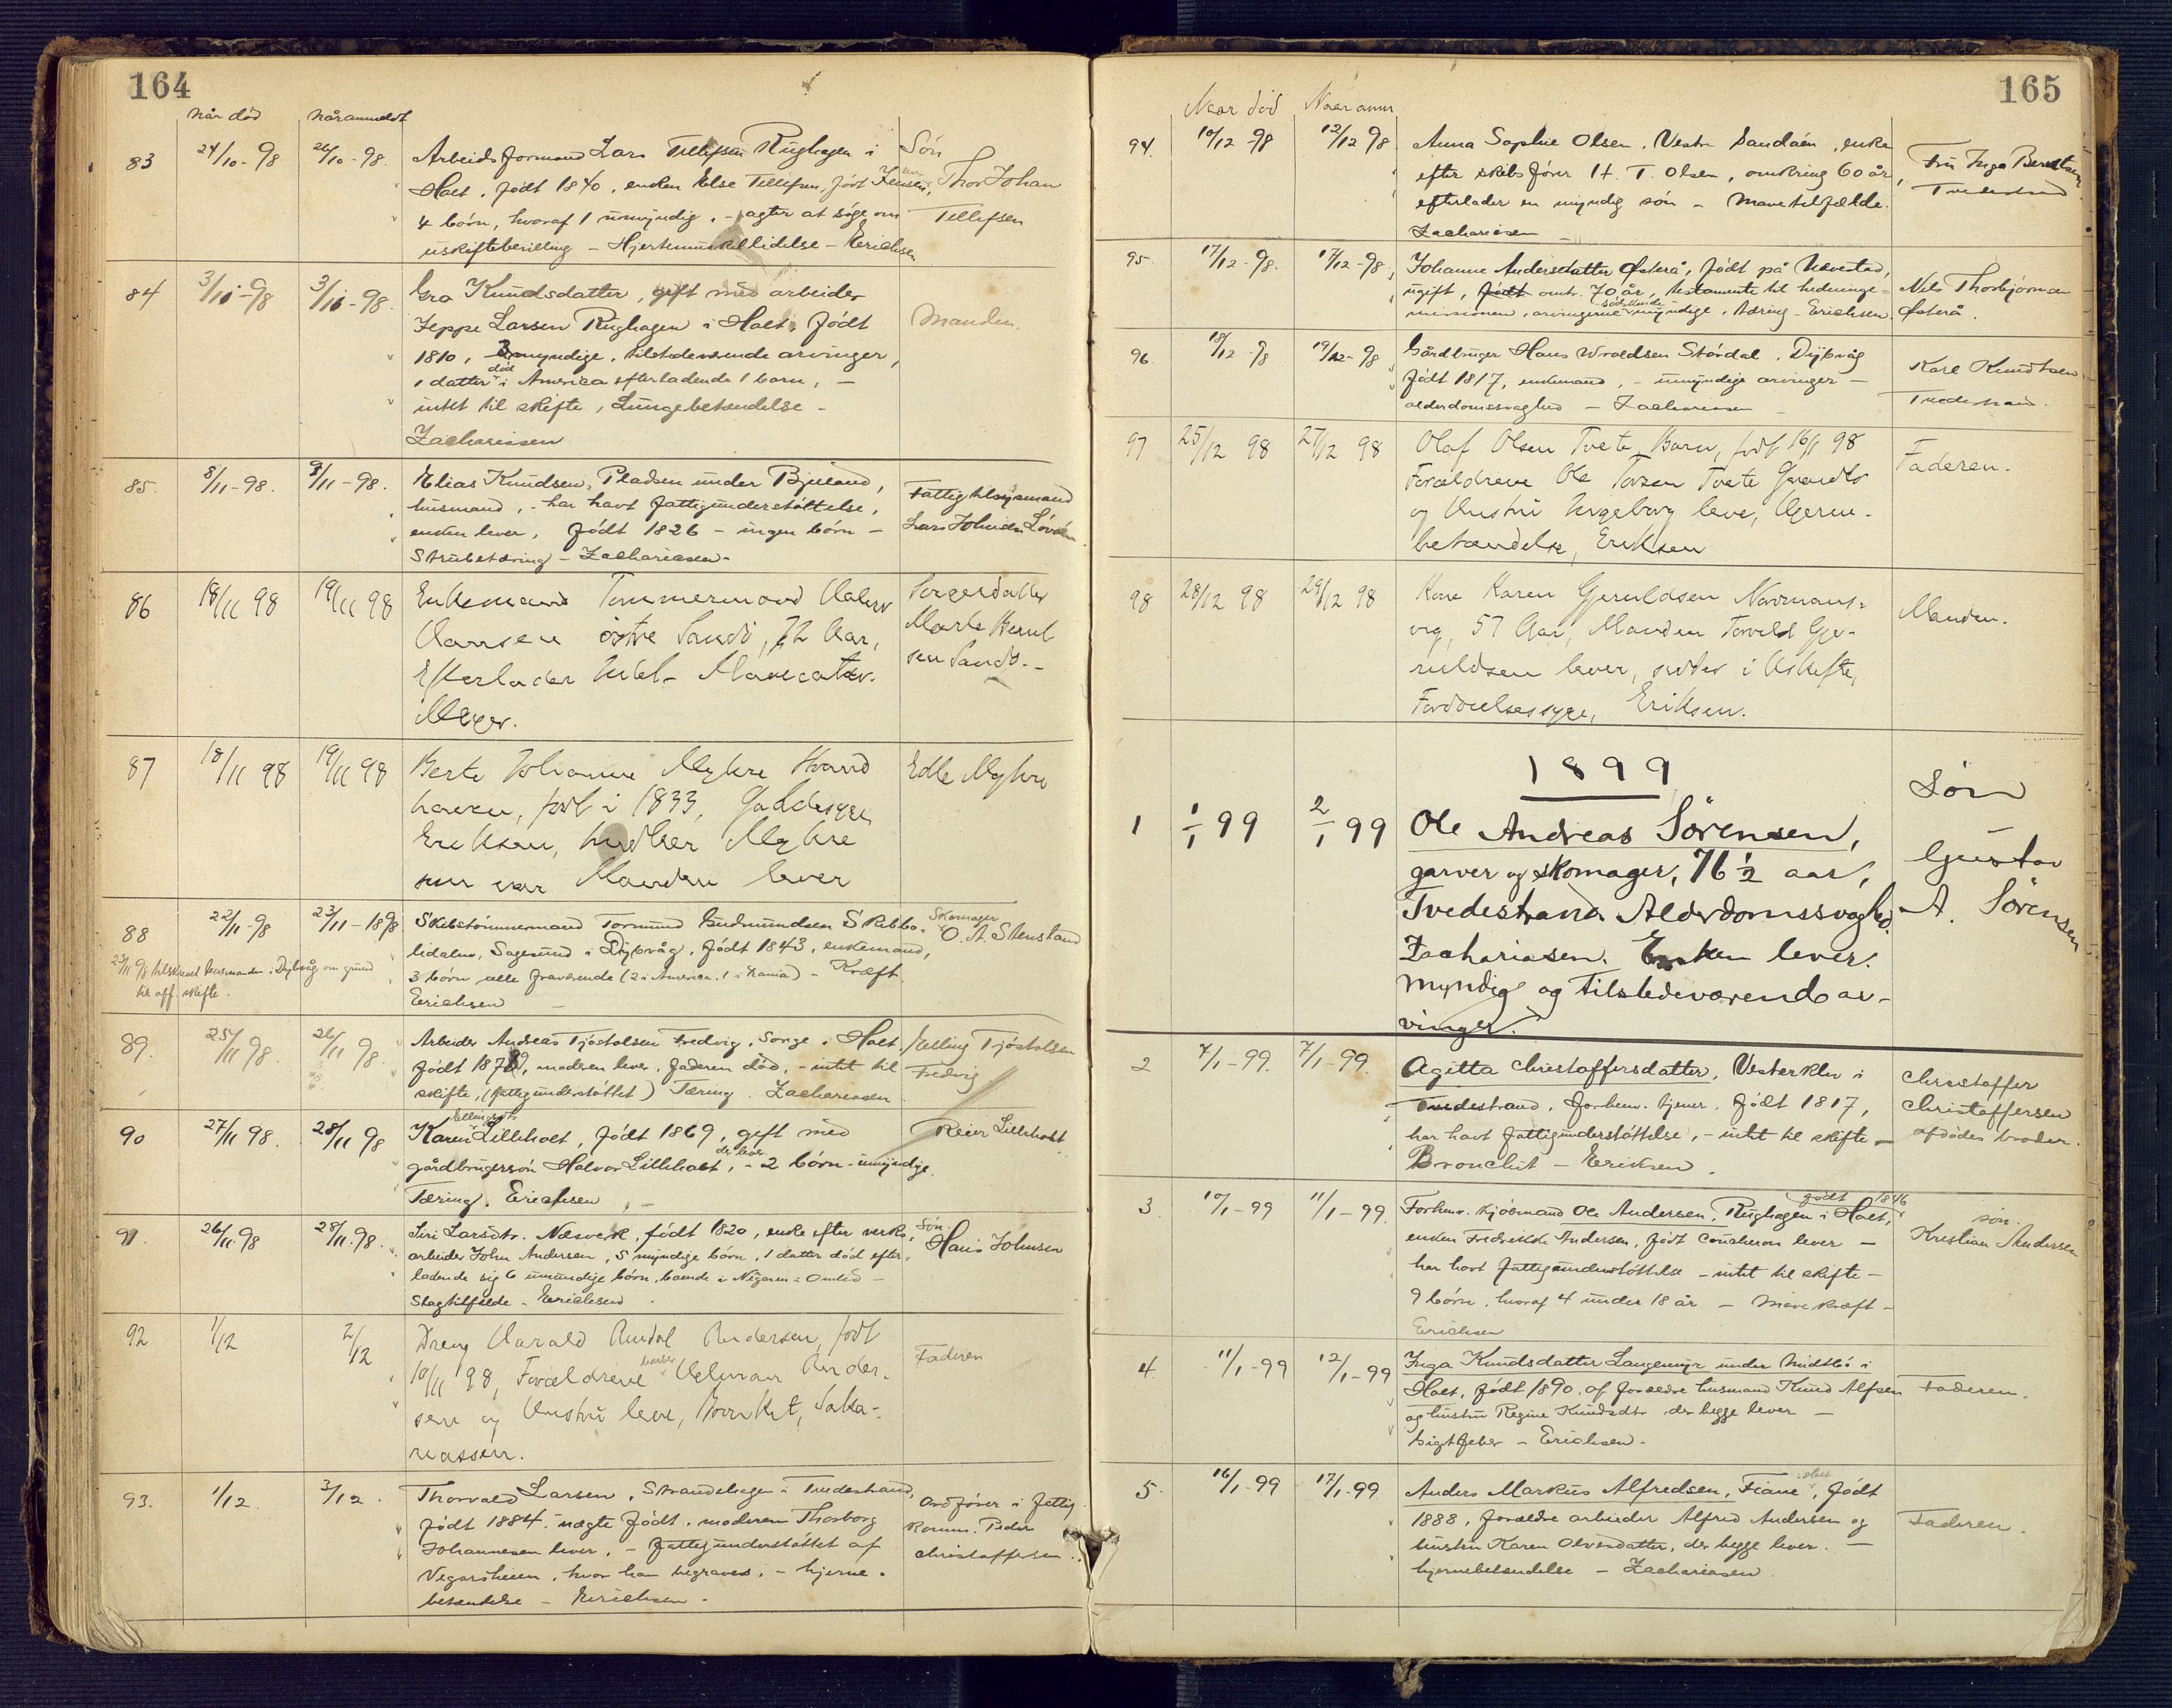 164
Når død
Når anmeldt
83
24/10-98
26/10-98
Arbeidsformand Lars Tellefsen Rughagen i
Holt, født 1840, enken Else Tellefsen, født Jensen,
4 børn, hvoraf 1 umyndig, - agter at søge om
uskiftebevilling - Hjertemuskellidelse - Erichsen
Søn
Thor Johan
Tellefsen
84
3/11-98
3/11-98.
Gro Knudsdatter, gift med arbeider
Jeppe Larsen Rughagen i Holt, født
1810, 3 myndige, tilstedeværende arvinger,
1 datter død i America efterladende 1 barn, -
intet til skifte, Lungebetændelse -
Zachariasen
Manden.
85.
8/11-98.
9/11-98.
Elias Knudsen, Pladsen under Bjuland,
husmand, - har havt fattigunderstøttelse,
enken lever, født 1826 - ingen børn -
Strubetæring - Zachariasen -
Fattigtilsynsmand
Lars Johnsen
86
18/11 98
19/11 98
Enkemand Tømmermand
Hansen østre Sandø, 72 Aar,
Efterlader Intet - Mavecatar.
Meyer.
Marte
Sandø. -
87
18/11 98
19/11 98
Berte Johanne Myhre
født i 1833, Galdesyge
Eriksen, Myhre
Manden lever
Edle Myhre
88
22/11-98
23/11-1898
Skibstømmermand Tormund Gudmundsen
Sagesund i Dybvåg, født 1843, enkemand,
3 børn, alle fraværende (2 i America, 1 i Rania) - Kræft.
Erichsen -
Skomager
O. A. Stensland
23/11 98 tilskrevet lensmanden i Dybvåg om grund
til off. skifte.
89.
25/11 98.
26/11 98.
Arbeider Andreas Tjøstolsen Fredvig, Songe, Holt.
født 187, modren lever, faderen død, - intet til
skifte, (fattigunderstøttet) Tæring. Zachariasen
Elling Tjøstolsen
Fredvig
90
27/11 98.
28/11 98
Ellingsdtr.
Karen Lilleholt, født 1869, gift med
der lever
gårdbrugersøn Halvor Lilleholt, - 2 børn - umyndige.
Tæring. Erichsen, -
Reier Lilleholt
91
26/11-98
28/11-98.
Siri Larsdtr. Næsverk, født 1820, enke efter verks-
arbeider John Andersen, 5 myndige børn, 1 datter død efter-
ladende sig 6 umyndige børn, boende i
Slagtilfælde - Erichsen.
Søn.
Hans Johnsen
92
1/12
2/12
Dreng Harald Andersen, født
10/11 98, Forældrene Ander-
sen og Hustru leve, Bronkit, Saka-
riassen.
Faderen
93.
1/12.
3/12.
Thorvald Larsen, Strandehagen i Tvedestrand,
født 1884. uægte født, moderen Thorborg
Johannesen lever, - fattigunderstøttet af
Vegårsheien, hvor han begraves, - hjerne-
betændelse - Erichsen.
Ordfører i fattig-
komm. Peder
Christoffersen.
165
Naar død
Naar anm
94.
10/12-98
12/12 98
Anna Sophie Olsen, Vestre Sandøen, enke
efter skibsfører H. T. Olsen, omkring 60 år,
efterlader en myndig søn - Mavetilfælde.
Zachariasen -
Fru Inga Berntsen,
Tvedestrand
95.
17/12-98.
17/12-98
Johanne Andersdatter Østerå, født på
ugift, født omtr. 70 år, testamente til hedninge-
missionen, arvingerne myndige, tæring - Erichsen.
Nils Thorbjørnsen
Østerå.
96.
18/12-98
19/12-98
Gårdbruger Hans Wroldsen Stórdal, Dybvåg
født 1817, enkemand, - umyndige arvinger -
alderdomssvaghed - Zachariasen -
Karl Knudtsen
Tvedestrand.
97
25/12 98
27/12 98
Olaf Olsen Tvete, Barn, født 16/1 98
Forældrene Ole Tvete
og Hustru Ingeborg leve, Hjerne-
betændelse, Eriksen
Faderen.
98
28/12 98
29/12 98
Kone Karen Gjeruldsen Normans-
vig, 57 Aar, Manden Torvild Gje-
ruldsen lever, sidder i Uskifte,
Fordøielsessyge, Eriksen.
Manden.
1899
1
1/1 99
2/1 99
Ole Andreas Sörensen,
garver og skomager, 76 1/2 aar,
Tvedestrand. Alderdomssvaghed.
Zachariasen. Enken lever.
Myndige og tilstedeværende ar-
vinger.
Sön
Gustav
A. Sörensen
2
4/1-99.
7/1-99.
Agitta Christoffersdatter, Vesterklev i
Tvedestrand, forhenv. tjener. født 1817,
har havt fattigunderstøttelse, - intet til skifte -
Bronchit - Eriksen.
Christoffer
Christoffersen
afdødes broder.
3
10/1-99
11/1-99.
født 1846
Forhenv. Ole Andersen, Rughagen i Holt,
enken Fredrikke Andersen, født Coucheron lever -
har havt fattigunderstøttelse - intet til skifte -
9 børn, hvoraf 4 under 18 år - Mavekræft -
Erichsen
søn.
Kristian Andersen
4.
11/1-99
12/1-99
Inga Knudsdatter Langemyr under Midtbø i
Holt, født 1890, af forældre husmand Knud Alfsen
og hustru Regine Knudsdtr. der begge lever -
Gigtfeber - Erichsen -
Faderen.
5.
16/1-99
17/1-99
Anders Markus Alfredsen, Fiane i Holt, født
1888, forældre arbeider Alfred Andersen og
hustru Karen Olevsdatter, der begge lever. -
hjernebetændelse - Zachariasen
Faderen.